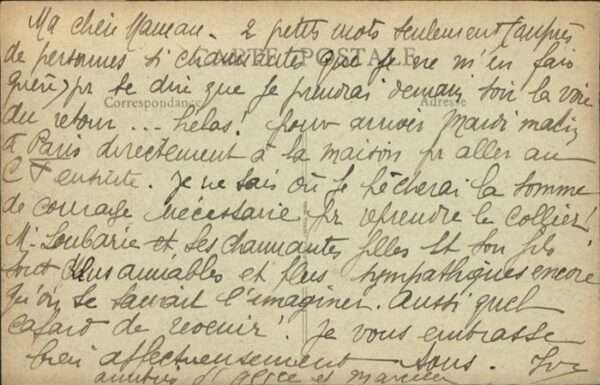 Ma chère Maman. 2 petits mots seulement (auprès
de personnes si charmantes que je ne m'en fais
CARTE POSTALE
guère) pr te dire que je prendrai demain soir la voie
Correspondance
Adresse
du retour ... hélas! pour arriver Mardi matin
à Paris directement à la maison pr aller au
ensuite. Je ne sais où je pêcherai la somme
de courage nécessaire pr reprendre le collier!
Mr Loubarie et ses charmantes filles et son fils
sont plus aimables et plus sympathiques encore
qu'on se saurait l'imaginer. Aussi quel
cafard de revenir! Je vous embrasse
bien affectueusement tous.
amitiés d' et Marcel